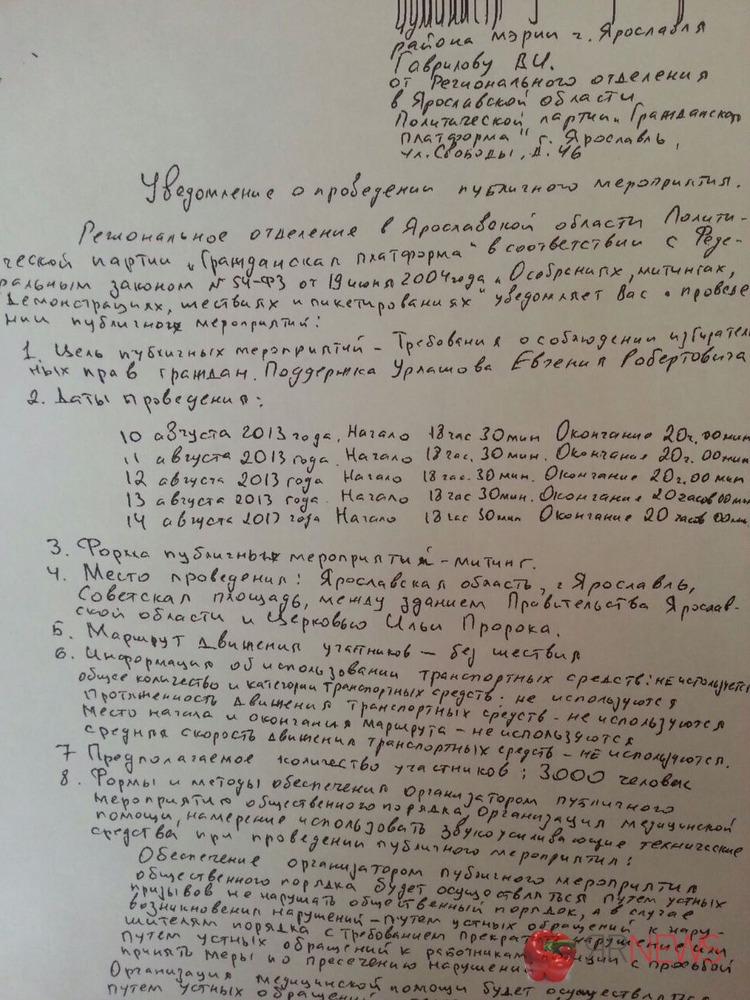 района мэрии г. Ярославля
Гаврилову В.И.
от Регионального отделения
в Ярославской области
Политической партии „Гражданская
платформа" г. Ярославль,
ул. Свободы, д. 46
Уведомление о проведении публичного мероприятия.
Региональное отделение в Ярославской области Полити-
ческой партии „Гражданская платформа" в соответствии с Феде-
ральным законом № 54-ФЗ от 19 июня 2004 года „О собраниях, митингах,
демонстрациях, шествиях и пикетированиях" уведомляет Вас о проведе
нии публичных мероприятий:
1. Цель публичных мероприятий - Требования о соблюдении избиратель
ных прав граждан. Поддержка Урлашова Евгения Робертовича
2. Даты проведения:
10 августа 2013 года. Начало 18 час 30 мин Окончание 20 г. 00 мин
11 августа 2013 года. Начало 18 час. 30 мин. Окончание 20 г. 00 мин
12 августа 2013 года Начало 18 час. 30 мин. Окончание 20 г. 00 мин
13 августа 2013 года. Начало 18 час 30 мин. Окончание 20 часов 00 мин
14 августа 2013 года Начало 18 час 30 мин Окончание 20 часов 00 мин.
3. Форма публичных мероприятий - митинг.
4. Место проведения: Ярославская область, г Ярославль,
Советская площадь, между зданием Правительства Ярослав-
ской области и Церковью Ильи Пророка.
5. Маршрут движения участников - без шествия
6. Информация об использовании транспортных средств: не используется
общее количество и категории транспортных средств: не используются
Протяженность движения транспортных средств - не используются
Место начала и окончания маршрута - не используются
средняя скорость движения транспортных средств - не используются.
7 Предполагаемое количество участников: 3000 человек
8. Формы и методы обеспечения организатором публичного
мероприятия общественного порядка, Организация медицинской
помощи, намерение использовать звукоусиливающие технические
средства при проведении публичного мероприятия:
Обеспечение организатором публичного мероприятия
общественного порядка будет осуществляться путем устных
призывов не нарушать общественный порядок, а в случае
возникновения нарушений - путем устных обращений к нару
шителям порядка с требованием прекратить нарушение или
путем устных обращений к работникам полиции с просьбой
принять меры по пресечению нарушений
Организация медицинской помощи будет осуществляться
путем устных обращений
NEWS